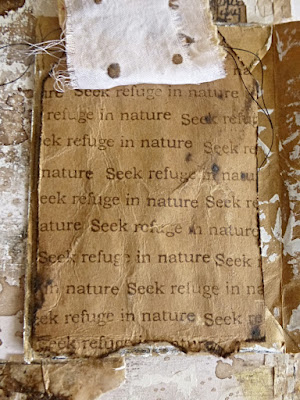 n
ure Seek refuge in nature
refuge in nature Seek refuge
eek refuge in nature Seek re
nature Seek refuge in natu
eek refuge in nature Seek re
ature Seek refuge in natur
Seek refuge in nature Seek
in nature Seek refuge in na
Seek refuge in nature Seek re
Seek refuge in natur